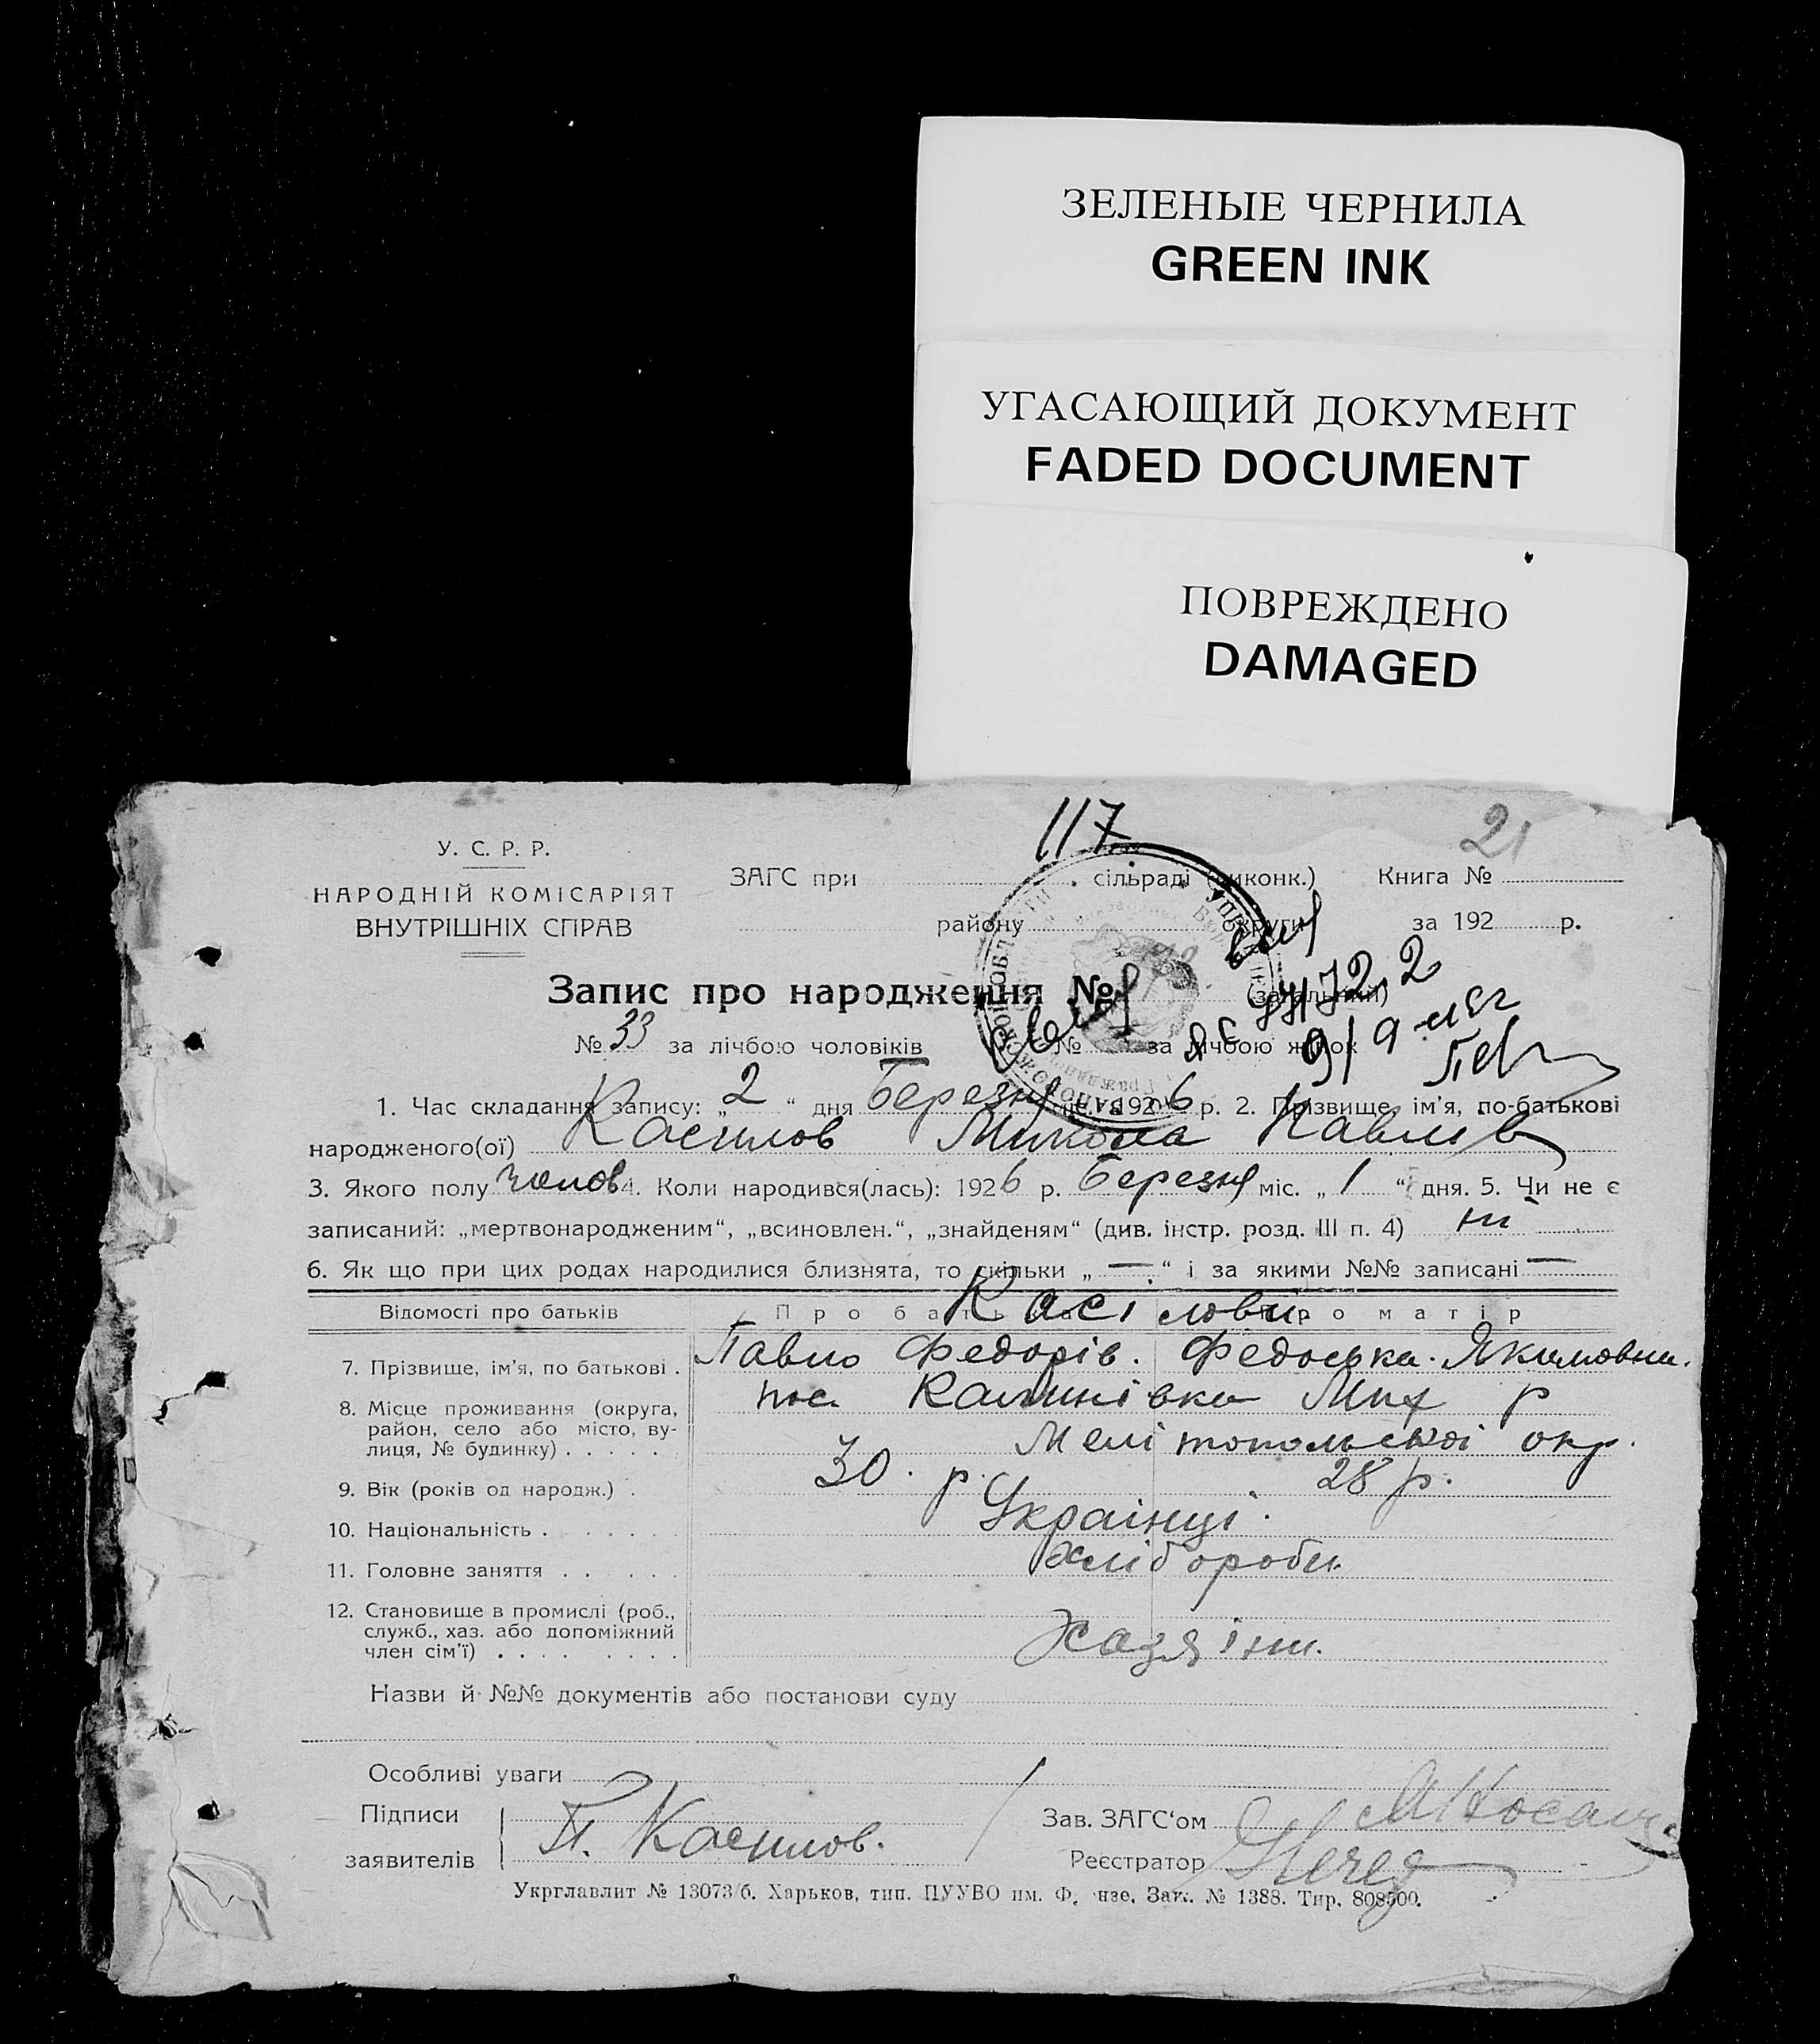 ЗЕЛЕНЫЕ ЧЕРНИЛА
GREEN INK
УГАСАЮЩИЙ ДОКУМЕНТ
FADED DOCUMENT
ПОВРЕЖДЕНО
DAMAGED
117
21
У. С. Р. Р.
НАРОДНІЙ КОМІСАРІЯТ
ВНУТРІШНІХ СПРАВ
ЗАГС при сільраді (виконк.) Книга №
району округи за 192 р.
Запис про народження № (загальний)
№ 33 за лічбою чоловіків № за лічбою жінок
1. Час складання запису: „ 2 “ дня Березня 1926 р. 2. Прізвище, ім’я, по-батькові
народженого(ої) Касилов Микола Павлів
3. Якого полу чолов 4. Коли народився(лась): 1926 р. Березня міс. „ 1 “ дня. 5. Чи не є
записаний: „мертвонародженим“, „всиновлен.“, „знайденям“ (див. інстр. розд. III п. 4) ні
6. Як що при цих родах народилися близнята, то скільки „ — “ і за якими №№ записані —
Відомості про батьків Про батька Про матір
Касілови
7. Прізвище, ім’я, по батькові . Павло Федорів. Федоська Якимовна.
8. Місце проживання (округа, район, село або місто, вулиця, № будинку) . . . . . пос. Калинівка Мих р
Мелітопольської окр.
9. Вік (років од народж.) . 30. р. 28 р.
10. Національність . . . . . . . Українці.
11. Головне заняття . . . . . Хлібороби
12. Становище в промислі (роб., служб., хаз. або допоміжний член сім’ї) . . . . . . . . Хазяіни.
Назви й №№ документів або постанови суду
Особливі уваги
Підписи заявителів П. Касилов.
Зав. ЗАГС‘ом
Реєстратор
Укрглавлит № 13073/б. Харьков, тип. ПУУВО им. Ф. нзе. Зак. № 1388. Тир. 808500.